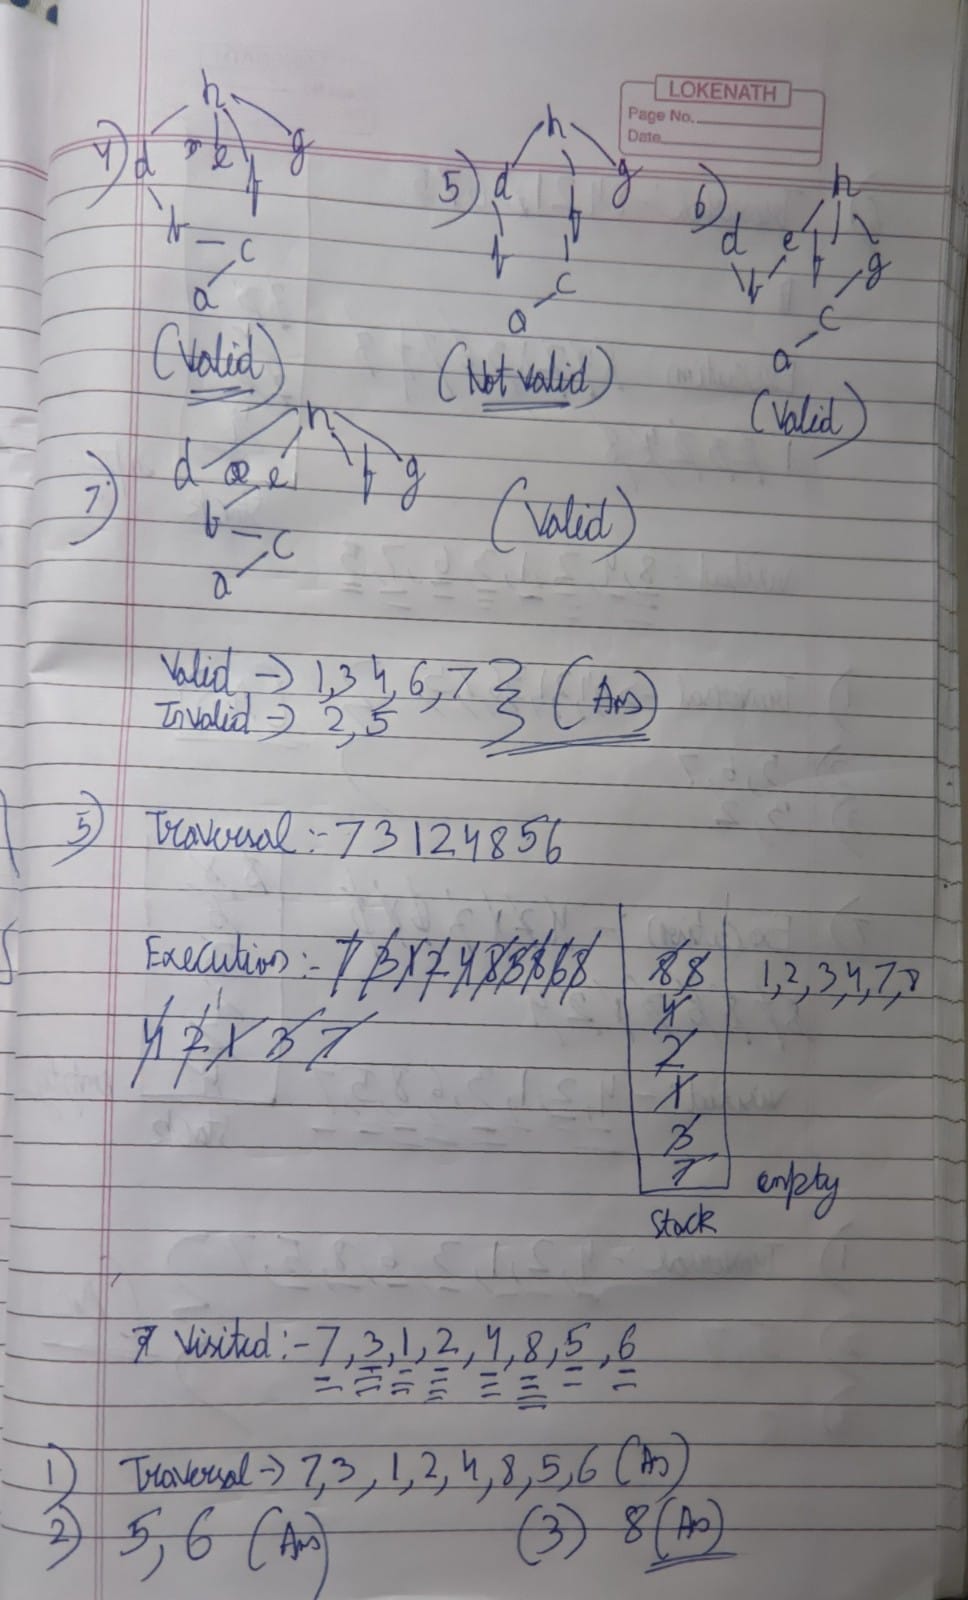 LOKENATH
Page No.
Date
4)
h
d e f g
b c
a
(Valid)
5)
h
d f g
f c
a
(Not valid)
6)
h
d e f g
b c
a
(Valid)
7)
h
d e f g
b c
a
(Valid)
Valid -> 1,3 4, 6, 7 } (Ans)
Invalid -> 2, 5
5) Traversal :- 7 3 1 2 4 8 5 6
Execution :- 7 3 1 2 4 8 5 8 6 8
4 2 1 3 7
8 8
4
2
1
3
7
1, 2, 3, 4, 7, 8
empty
Stack
Visited :- 7, 3, 1, 2, 4, 8, 5, 6
1) Traversal -> 7, 3, 1, 2, 4, 8, 5, 6 (As)
2) 5, 6 (Ans) (3) 8 (As)